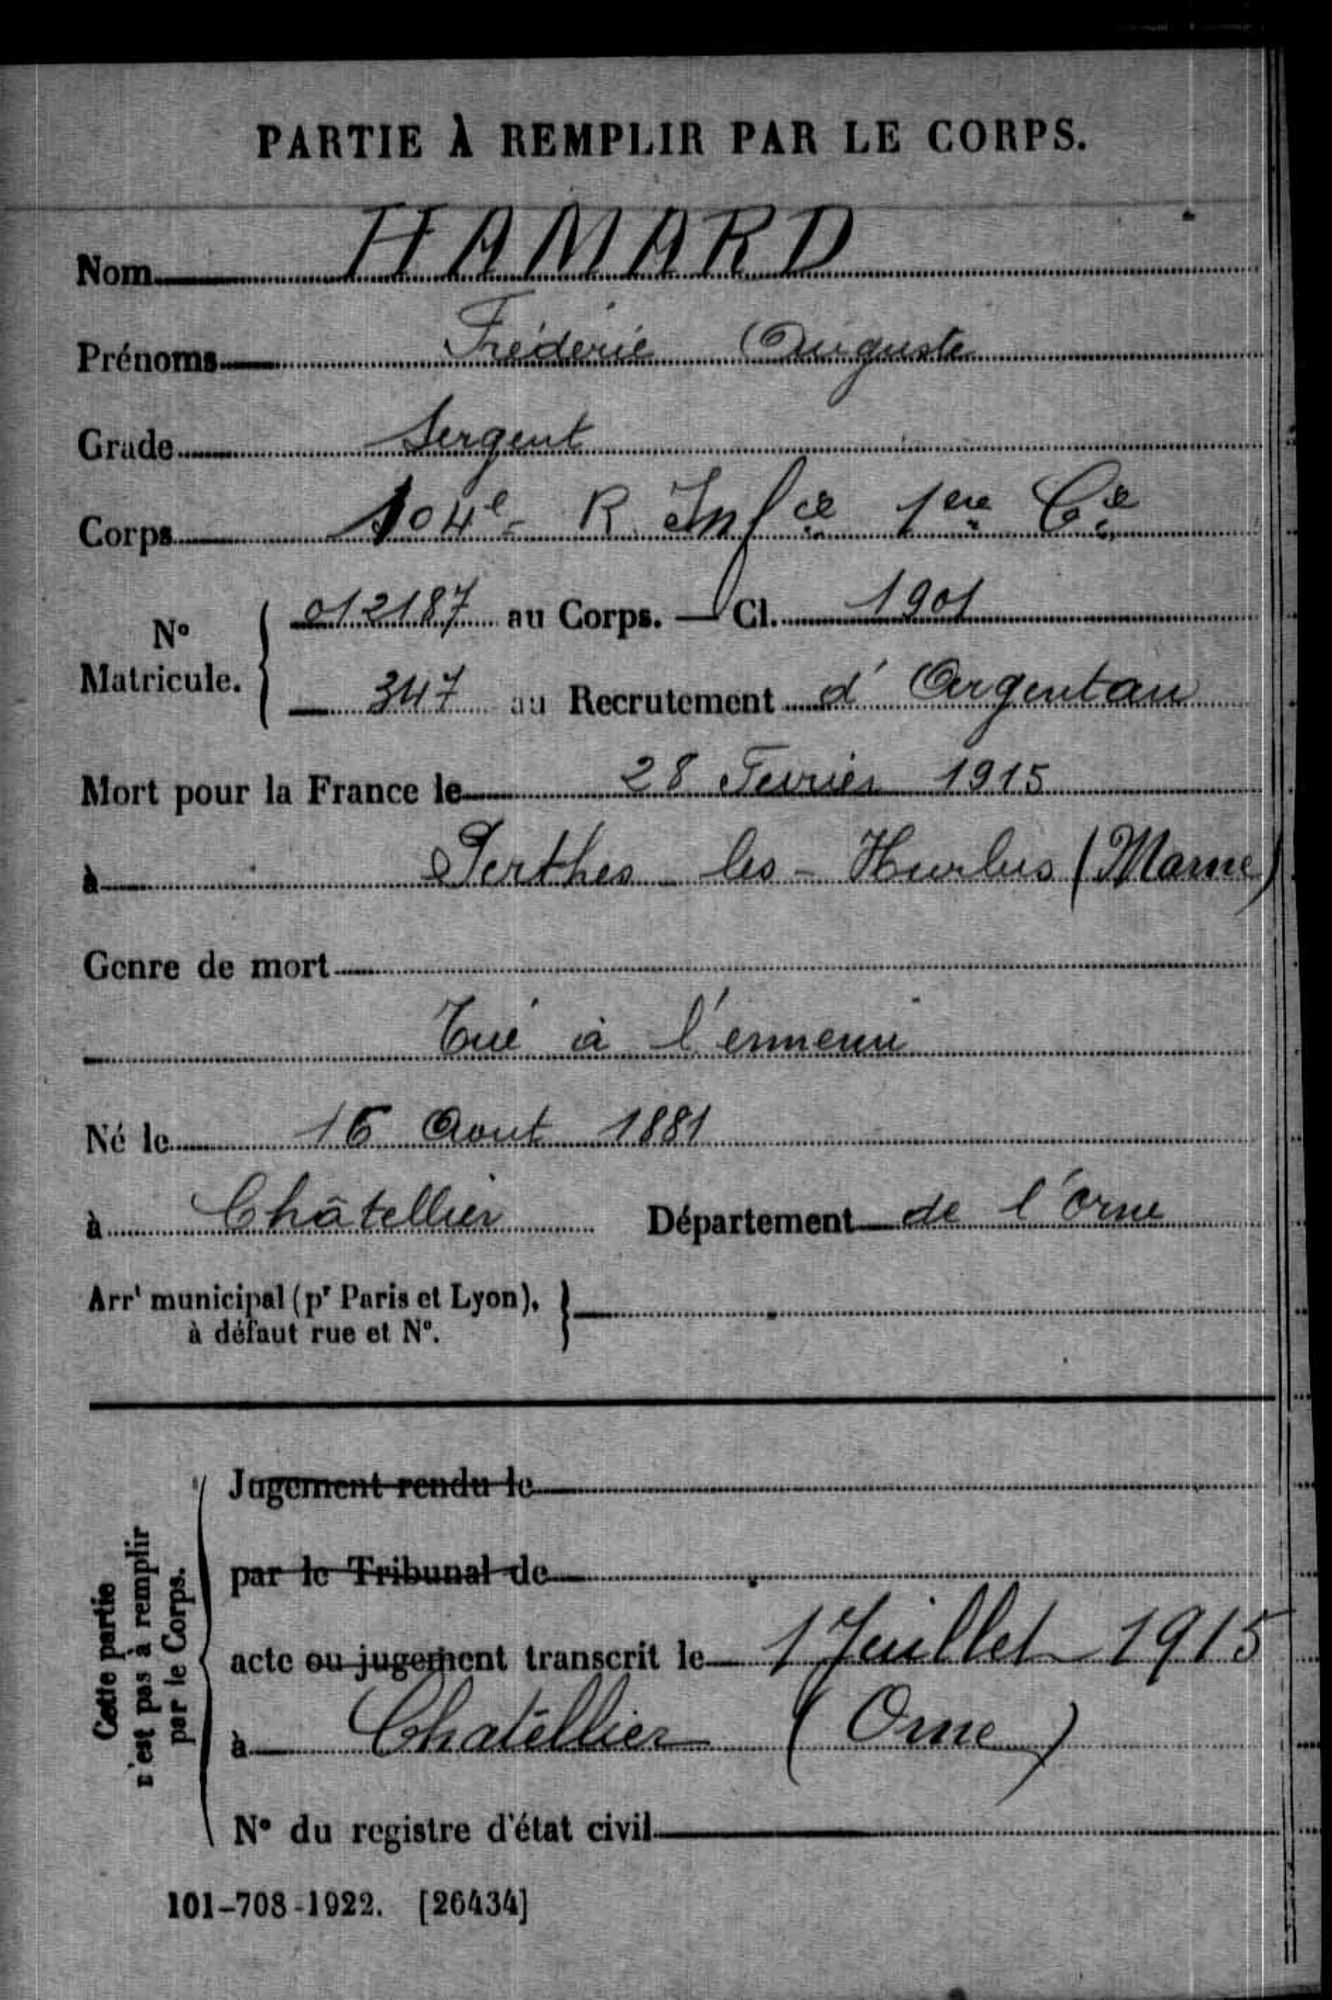 PARTIE À REMPLIR PAR LE CORPS.
Nom HAMARD
Prénoms Fréderic Auguste
Grade Sergent
Corps 104e R. Infie 1ere Cie
N° Matricule. { 012187 au Corps. — Cl. 1901
347 au Recrutement d'Argentan
Mort pour la France le 28 Fevrier 1915
à Perthes-les-Hurlus (Marne)
Genre de mort
Tué à l'ennemi
Né le 16 Aout 1881
à Châtellier Département de l'Orne
Arrt municipal (pr Paris et Lyon), }
à défaut rue et N°.
Cette partie
n'est pas à remplir
par le Corps.
Jugement rendu le
par le Tribunal de
acte ou jugement transcrit le 1 Juillet 1915
à Chatellier (Orne)
N° du registre d'état civil
101-708-1922. [26434]